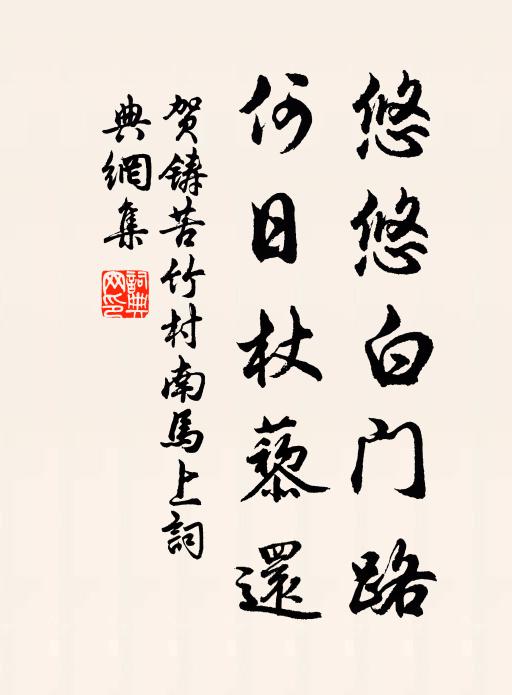 悠悠白门路
何日杖藜還
賀鑄苦竹村南馬上詞
典網集
詞典網印